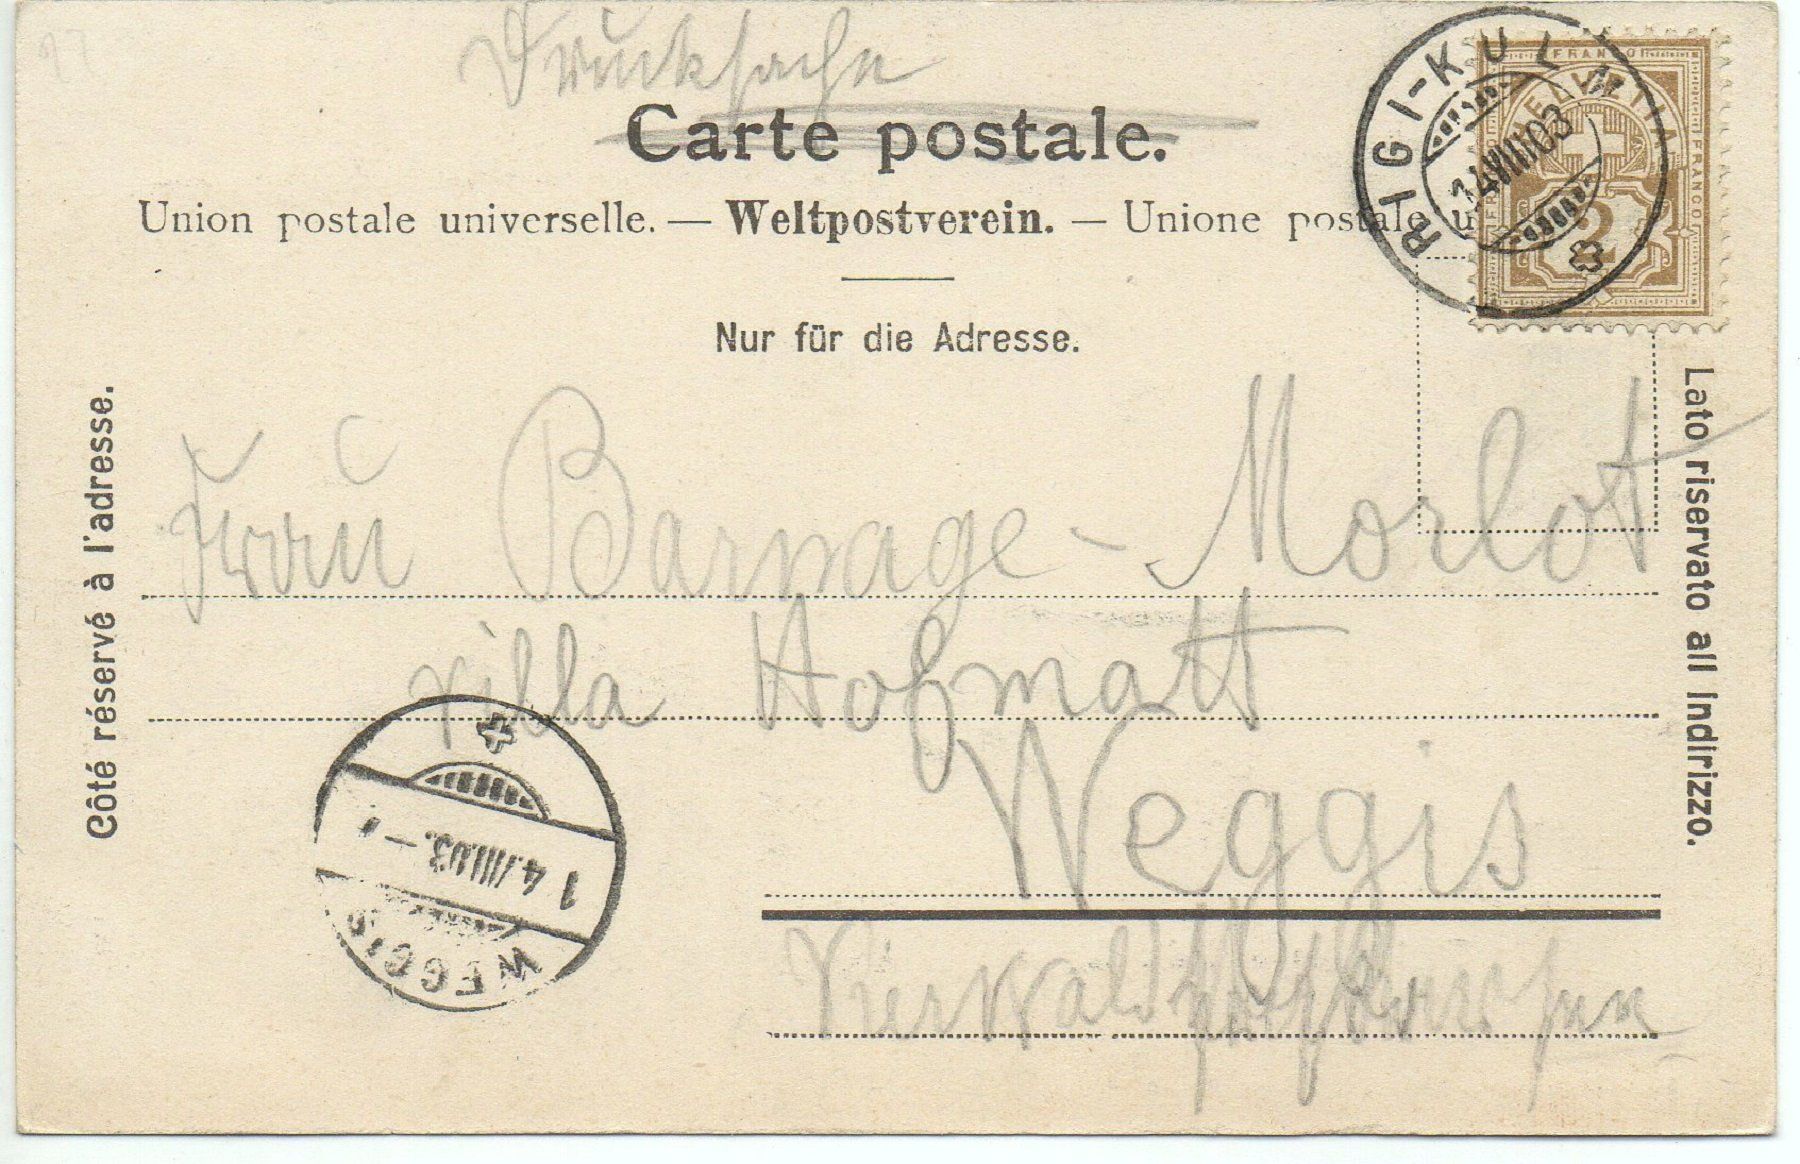 97
Drucksache
Carte postale.
Union postale universelle. — Weltpostverein. — Unione postale u
Nur für die Adresse.
RIGI-KULM
14 VIII 03
FRANCO
HELVETIA
FRANCO
FRANCO
2
Côté réservé à l'adresse.
Lato riservato all Indirizzo.
Frau Barnage-Morlot
villa Hofmatt
Weggis
Vierwaldstättersee
WEGGIS
14.VIII.03.